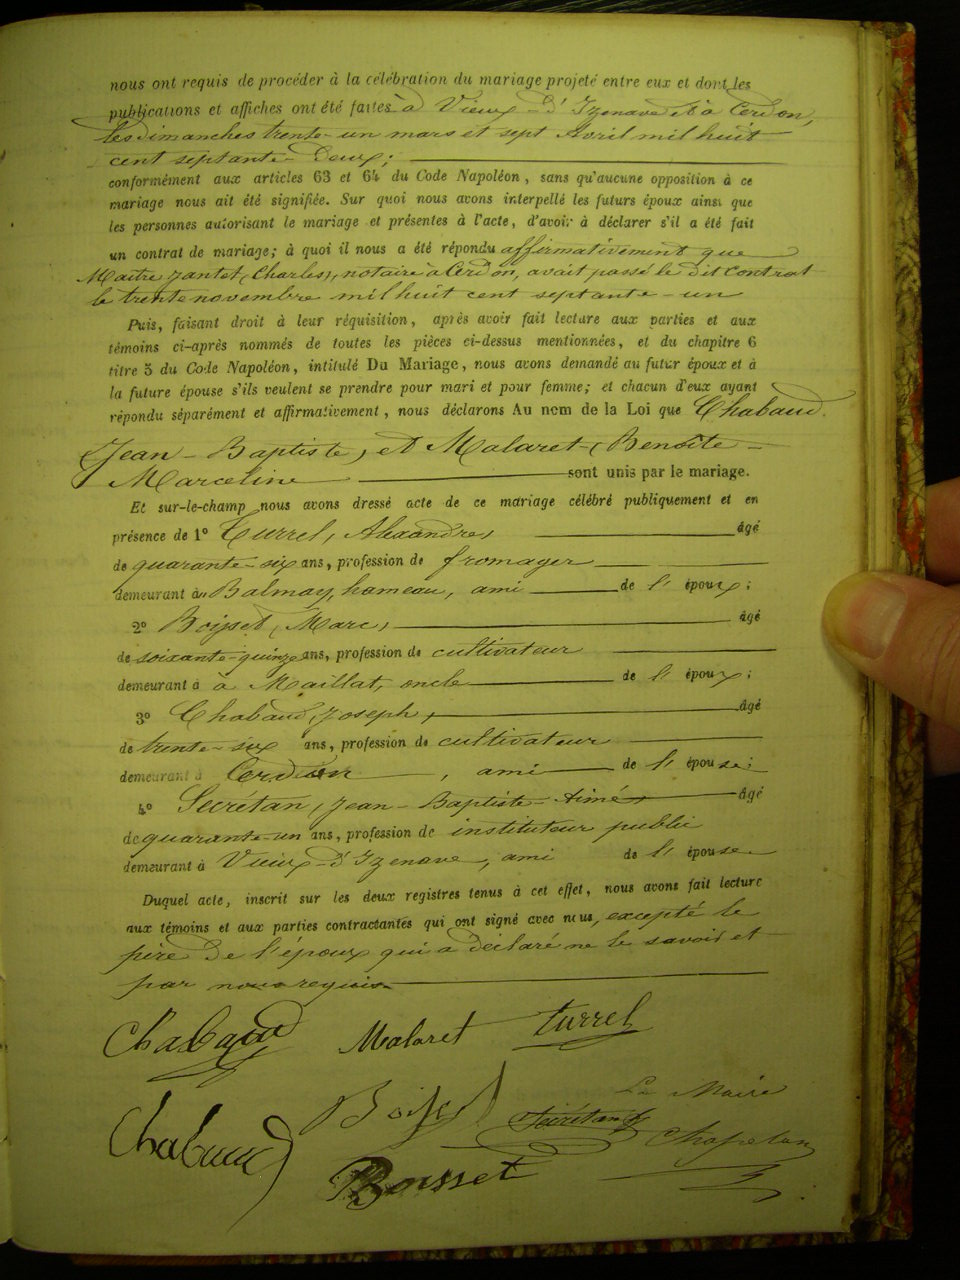 nous ont requis de procéder à la célébration du mariage projeté entre eux et dont les
publications et affiches ont été faites à Vieux-d'Izenave et à Cerdon,
les dimanches trente-un mars et sept Avril mil huit
cent septante-deux;
conformément aux articles 63 et 64 du Code Napoléon, sans qu'aucune opposition à ce
mariage nous ait été signifiée. Sur quoi nous avons interpellé les futurs époux ainsi que
les personnes autorisant le mariage et présentes à l'acte, d'avoir à déclarer s'il a été fait
un contrat de mariage; à quoi il nous a été répondu affirmativement que
Maître Jantet, (Charles), notaire à Cerdon, avait passé le dit contrat
le trente novembre mil huit cent septante-un
Puis, faisant droit à leur réquisition, après avoir fait lecture aux parties et aux
témoins ci-après nommés de toutes les pièces ci-dessus mentionnées, et du chapitre 6
titre 5 du Code Napoléon, intitulé Du Mariage, nous avons demandé au futur époux et à
la future épouse s'ils veulent se prendre pour mari et pour femme; et chacun d'eux ayant
répondu séparément et affirmativement, nous déclarons Au nom de la Loi que Chabaud.
Jean-Baptiste, et Malaret (Benoîte-
Marceline sont unis par le mariage.
Et sur-le-champ nous avons dressé acte de ce mariage célébré publiquement et en
présence de 1° Turrel, Alexandre, âgé
de quarante-six ans, profession de fromager
demeurant à Balmay, hameau, ami de l'époux;
2° Boisset, (Marc), âgé
de soixante-quinze ans, profession de cultivateur
demeurant à à Maillat, oncle de l'époux;
3° Chabaud, Joseph, âgé
de trente-six ans, profession de cultivateur
demeurant à Cerdon, ami de l'épouse;
4° Secrétan, Jean-Baptiste-Aimé âgé
de quarante-un ans, profession de instituteur public
demeurant à Vieux-d'Izenave, ami de l'épouse
Duquel acte, inscrit sur les deux registres tenus à cet effet, nous avons fait lecture
aux témoins et aux parties contractantes qui ont signé avec nous, excepté le
père de l'époux qui a déclaré ne le savoir et
par nous requis.
Chabaud Malaret Turrel
Le Maire
Chabaud Boisset Secrétan Chapelan
Boisset